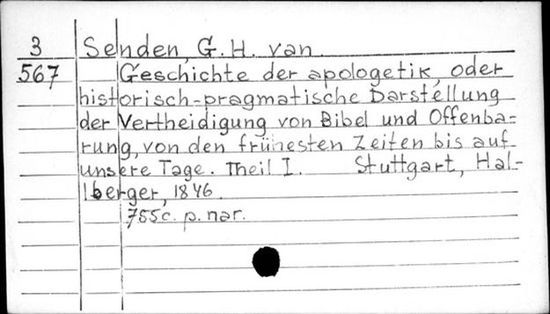 3 Senden, G. H. van
567 Geschichte der apologetik, oder
historisch-pragmatische Darstellung
der Vertheidigung von Bibel und Offenba=
rung, von den frühesten Zeiten bis auf
unsere Tage. Theil I. Stuttgart, Hal-
lberger, 1846.
755c. p. nar.